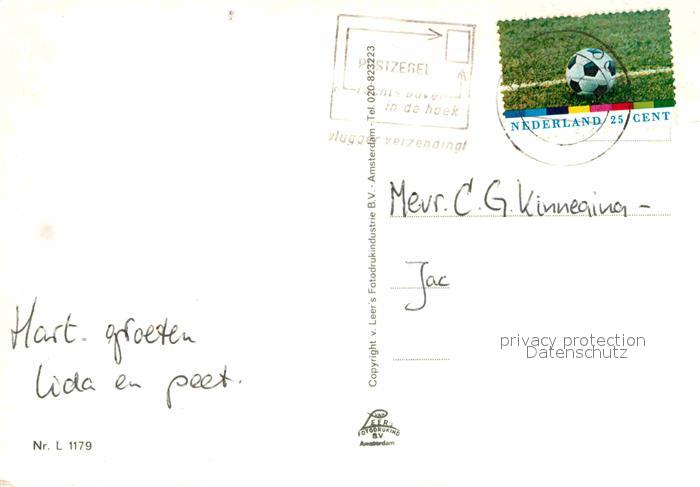 POSTZEGEL
rechts boven
in de hoek
vlugger verzending!
NEDERLAND 25 CENT
Mevr. C. G. Kinneging -
Jac
privacy protection
Datenschutz
Hart. groeten
Lida en peet.
Nr. L 1179
Copyright v. Leer's Fotodrukindustrie B.V. - Amsterdam - Tel. 020-823223
VAN
LEER'S
FOTODRUKIND
B.V
Amsterdam